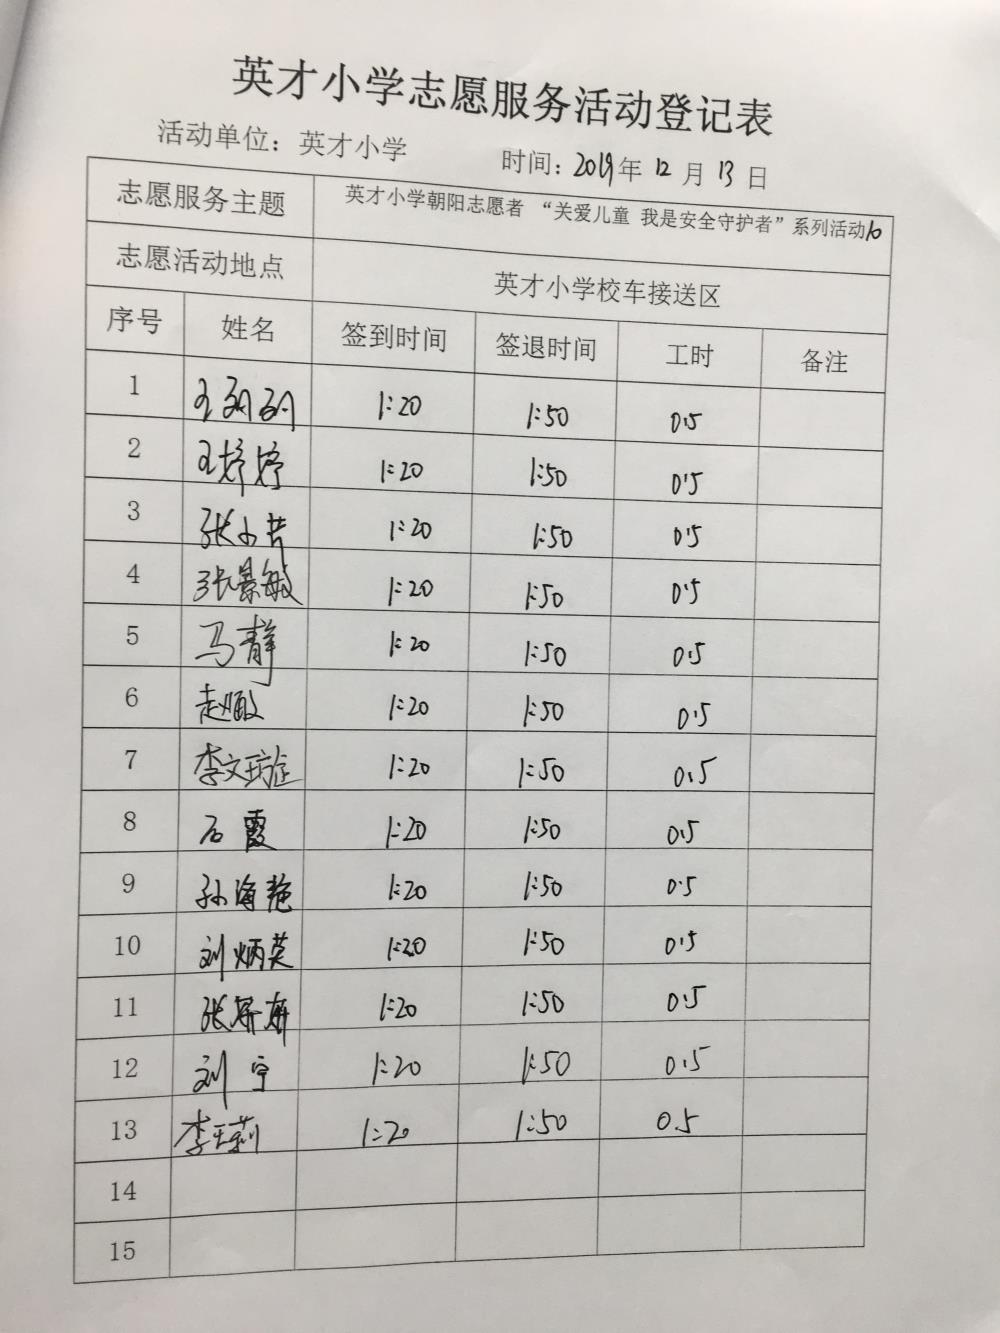 英才小学志愿服务活动登记表
活动单位：英才小学 时间：2019年12月13日
志愿服务主题 英才小学朝阳志愿者 “关爱儿童 我是安全守护者”系列活动10
志愿活动地点 英才小学校车接送区
序号 姓名 签到时间 签退时间 工时 备注
1 王 1:20 1:50 0.5
2 王婷婷 1:20 1:50 0.5
3 张小芳 1:20 1:50 0.5
4 张景敏 1:20 1:50 0.5
5 马静 1:20 1:50 0.5
6 赵 1:20 1:50 0.5
7 李文 1:20 1:50 0.5
8 石霞 1:20 1:50 0.5
9 孙海艳 1:20 1:50 0.5
10 刘炳英 1:20 1:50 0.5
11 张 1:20 1:50 0.5
12 刘宁 1:20 1:50 0.5
13 李玉莉 1:20 1:50 0.5
14
15